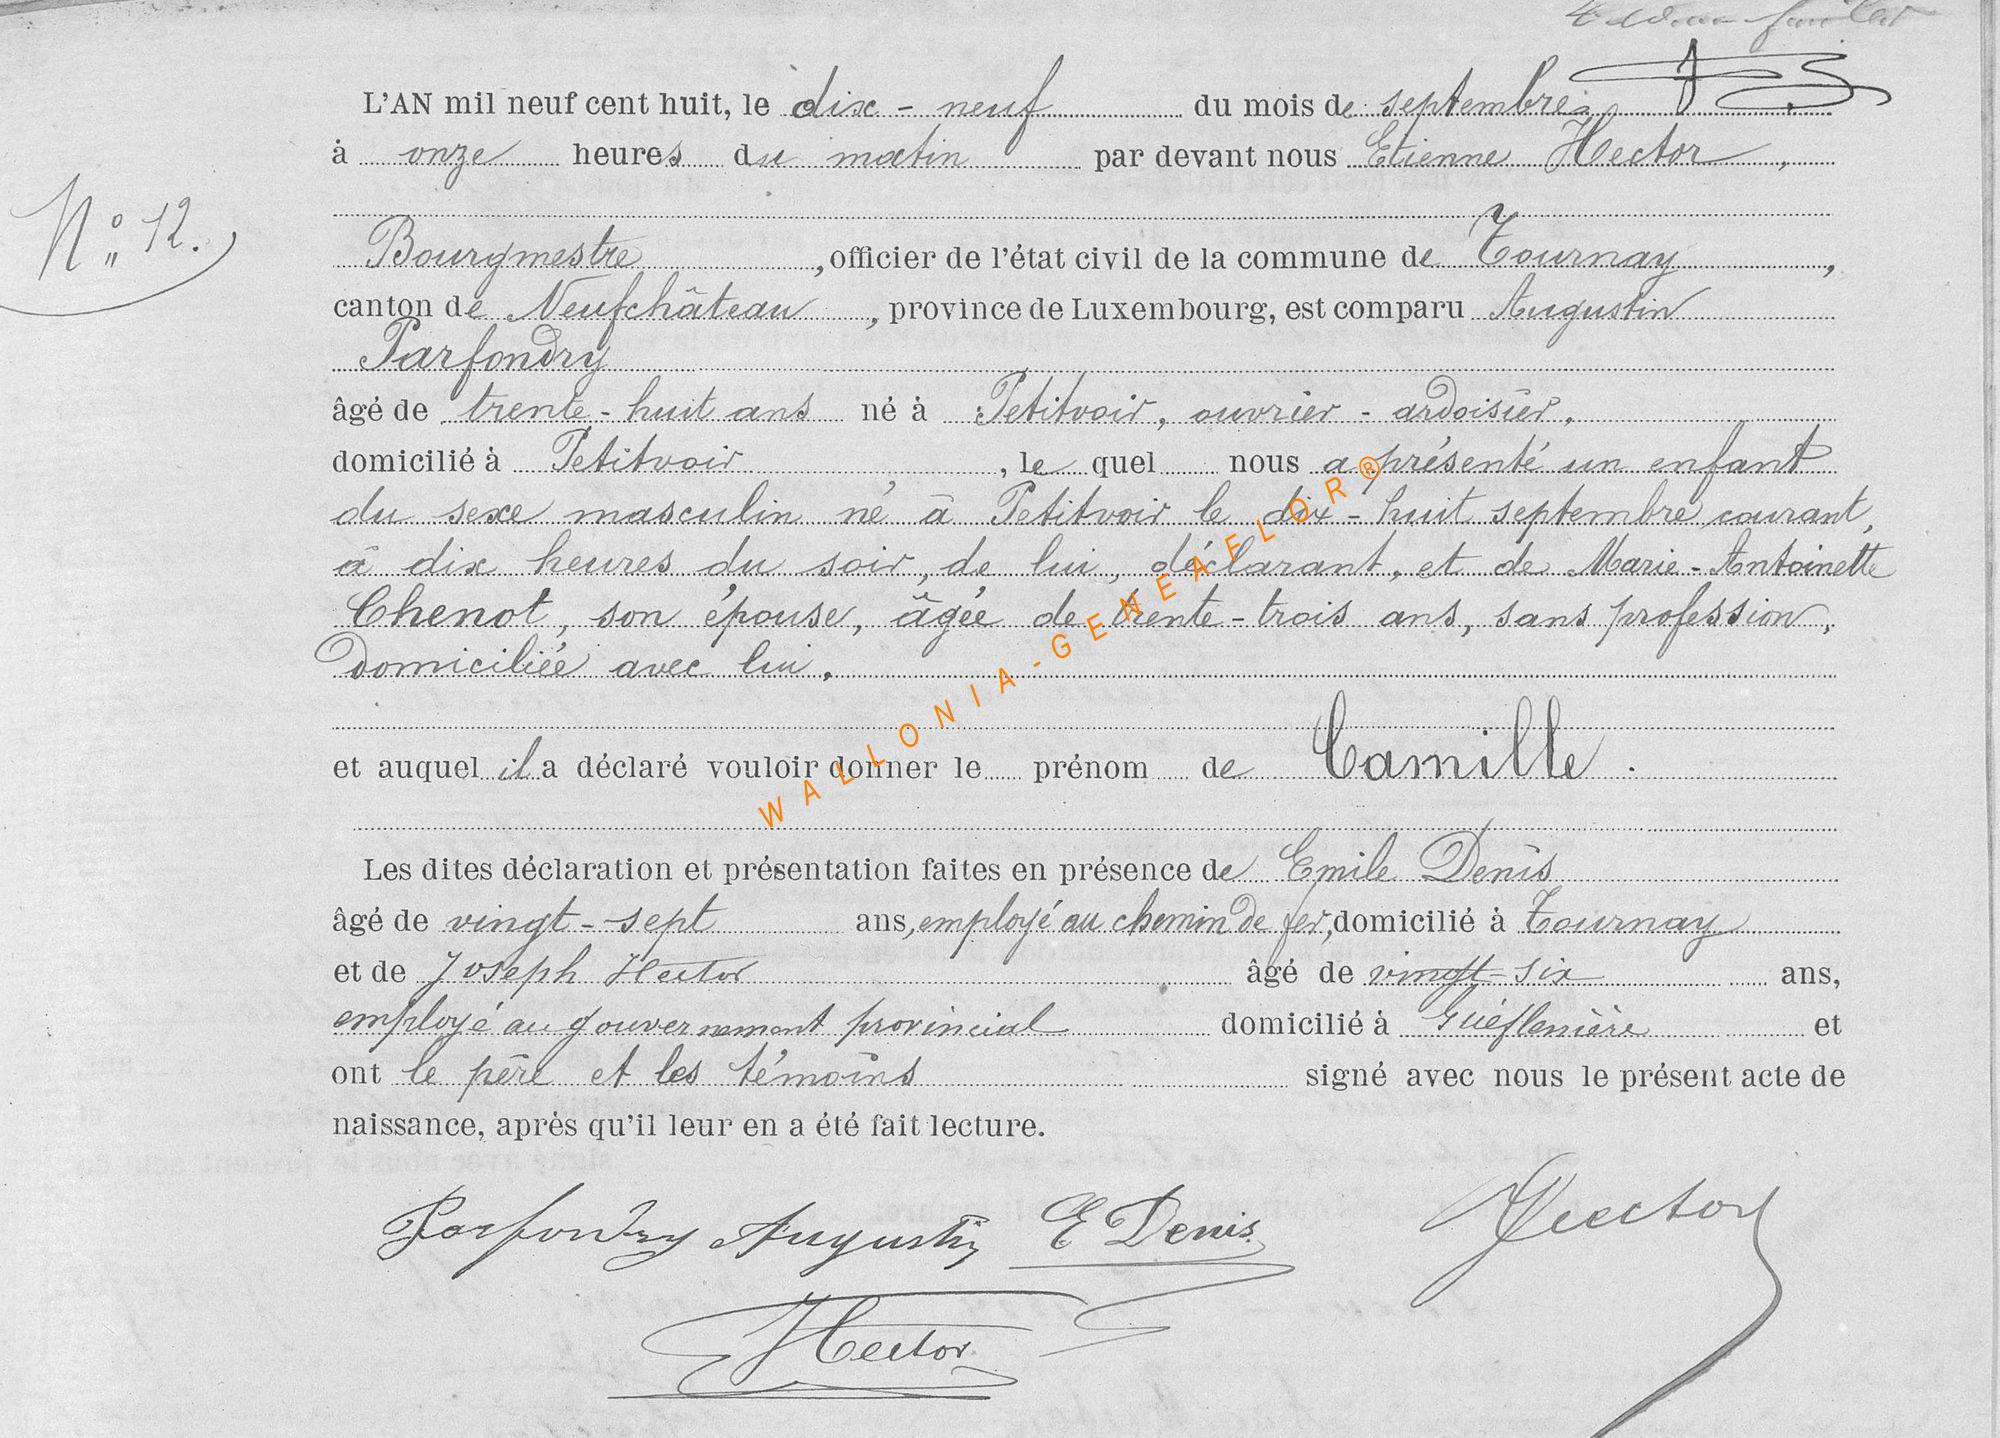 L'AN mil neuf cent huit, le dix-neuf du mois de septembre
à onze heures du matin par devant nous Etienne Hector,
N° 12.
Bourgmestre, officier de l'état civil de la commune de Tournay,
canton de Neufchâteau, province de Luxembourg, est comparu Augustin
Parfondry
âgé de trente-huit ans né à Petitvoir, ouvrier-ardoisier,
domicilié à Petitvoir, le quel nous a présenté un enfant
du sexe masculin né à Petitvoir le dix-huit septembre courant,
à dix heures du soir, de lui, déclarant, et de Marie-Antoinette
Chenot, son épouse, âgée de trente-trois ans, sans profession,
domiciliée avec lui,
et auquel il a déclaré vouloir donner le prénom de Camille.
Les dites déclaration et présentation faites en présence de Emile Denis
âgé de vingt-sept ans, employé au chemin de fer, domicilié à Tournay
et de Joseph Hector âgé de vingt-six ans,
employé au gouvernement provincial domicilié à et
ont le père et les témoins signé avec nous le présent acte de
naissance, après qu'il leur en a été fait lecture.
Parfondry Augustin E Denis Hector
Hector
WALLONIA-GENEAFLOR®